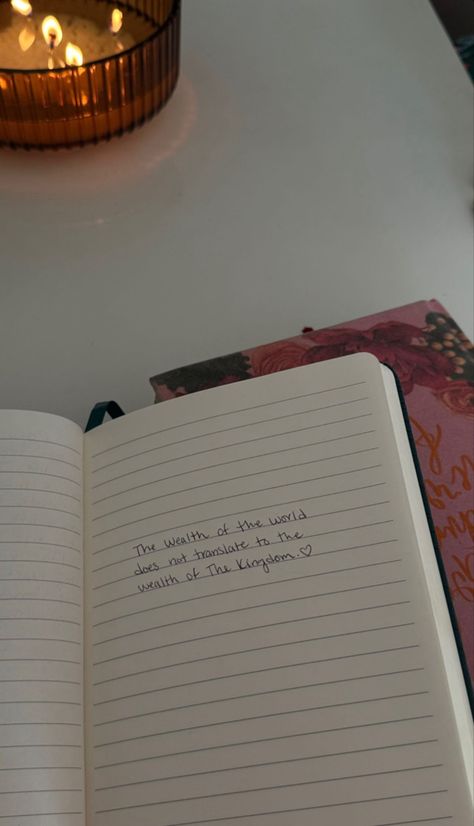 The Wealth of the World
does not translate to the
wealth of The Kingdom. ♡